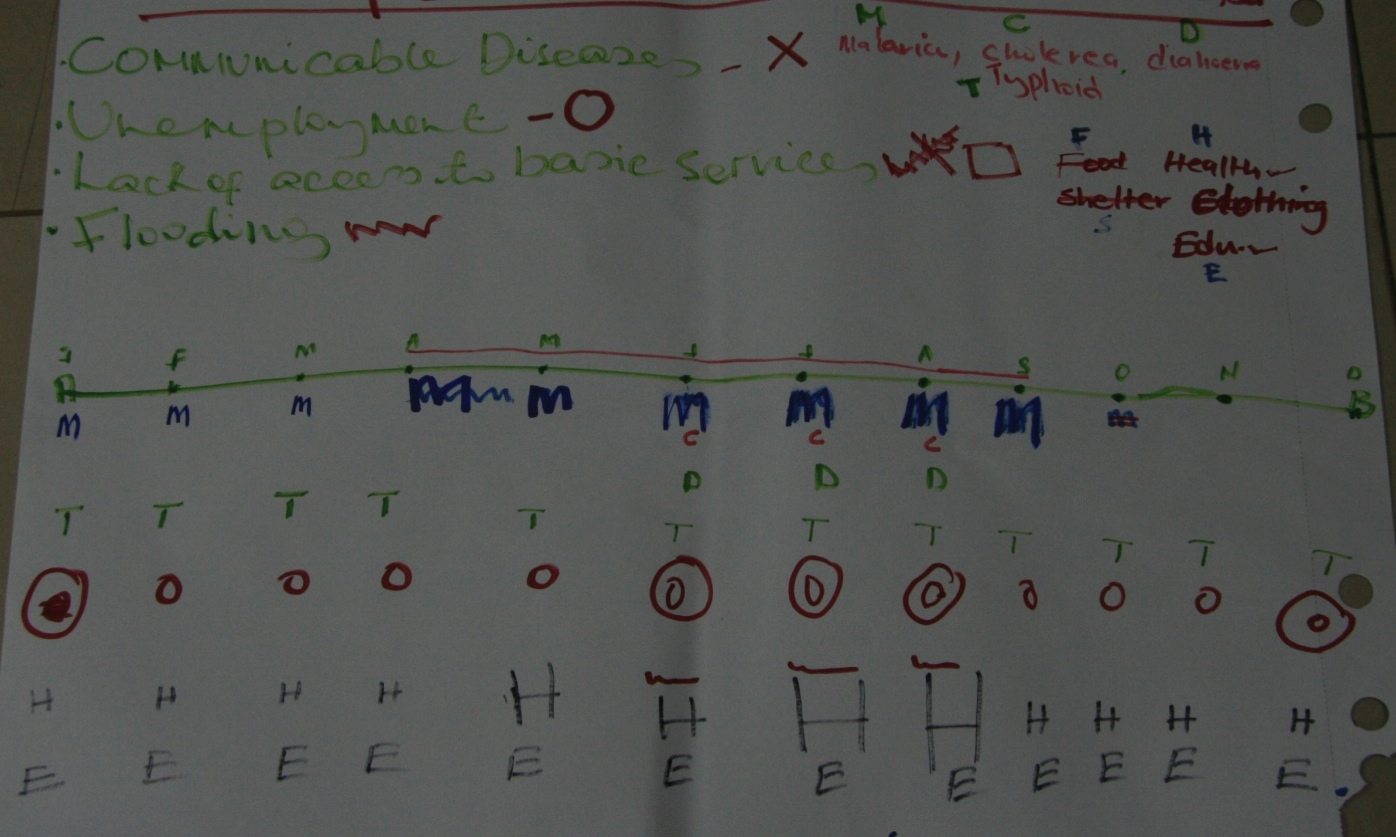 M C D
· Communicable Diseases - X Malaria, Cholerea, diahoerea
T Typhoid
· Unemployment - O
F H
· Lack of access to basic services Food Health
Shelter Clothing
S
· Flooding Edu.
E
J F M A M J J A S O N D
A B
M M M M M M M M M
C C C
D D D
T T T T T T T T T T T T
O O O O O O O O O O O O
H H H H H H H H H H H H
E E E E E E E E E E E E